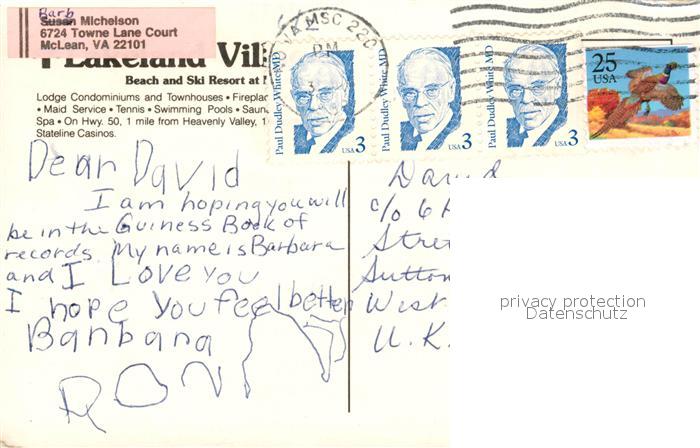 Barb
Susan Michelson
6724 Towne Lane Court
McLean, VA 22101
Lakeland Vil
Beach and Ski Resort at
Lodge Condominiums and Townhouses • Fireplac
• Maid Service • Tennis • Swimming Pools • Saun
Spa • On Hwy. 50, 1 mile from Heavenly Valley, 1
Stateline Casinos.
VA MSC 220
PM
Paul Dudley White MD
USA 3
Paul Dudley White MD
USA 3
Paul Dudley White MD
USA 3
25
USA
Dear David
I am hoping you will
be in the Guiness Book of
records My name is Barbara
and I Love you
I hope you feel better
Banbana
David
c/o 6
Stre
Sutton
West
U.K.
privacy protection
Datenschutz